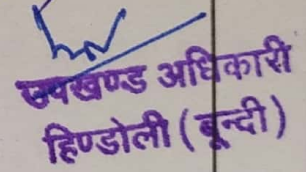 उपखण्ड अधिकारी
हिण्डोली (बून्दी)